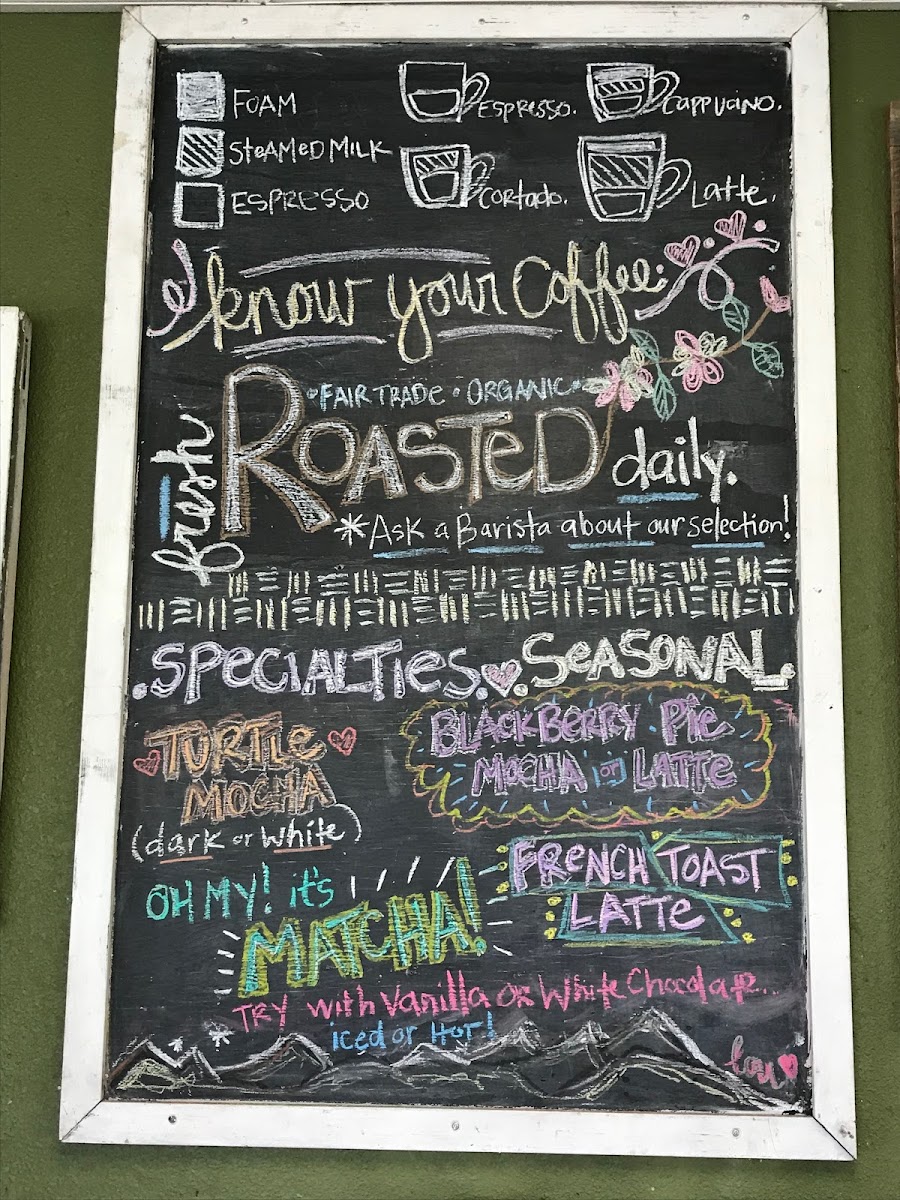 FOAM
STEAMED MILK
ESPRESSO
ESPRESSO.
CAPPUCINO.
Cortado.
Latte.
know your Coffee.
• FAIR TRADE • ORGANIC •
fresh ROASTED daily.
*Ask a Barista about our selection!
• SPECIALTIES. • SEASONAL.
TURTLE
MOCHA
(dark or white)
BLACKBERRY Pie
MOCHA or LATTE
FRENCH TOAST
LATTE
OH MY! it's
MATCHA!
TRY with Vanilla OR White Chocolate...
iced or HOT!